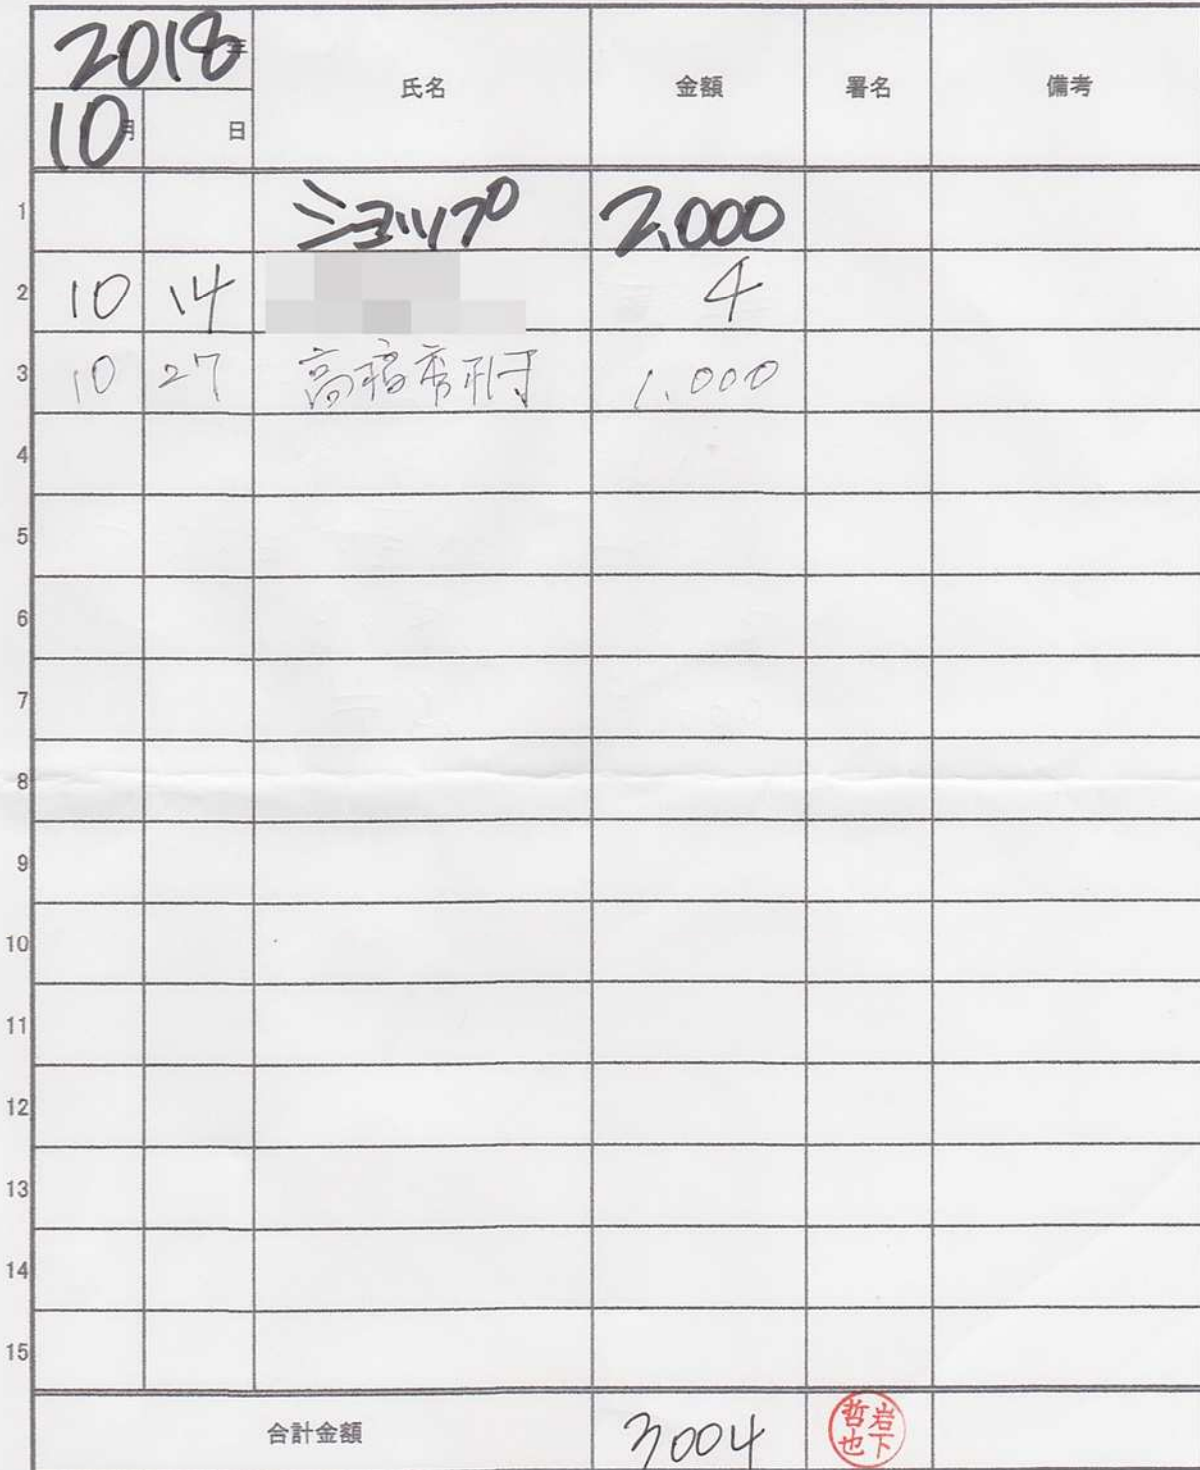 2018年
氏名 金額 署名 備考
10月 日
1 ショップ 2,000
2 10 14 4
3 10 27 1,000
4
5
6
7
8
9
10
11
12
13
14
15
合計金額 3004 岩下哲也